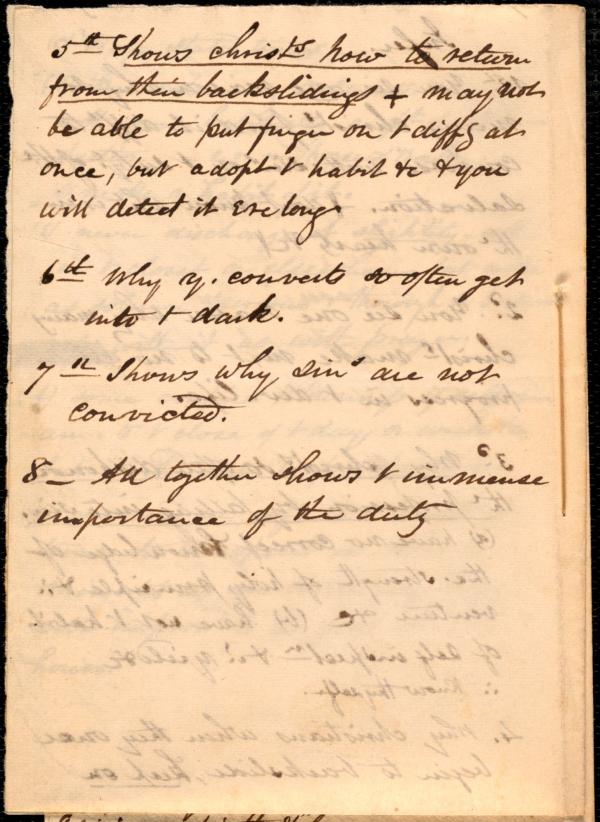 5th Shows christs how to return
from their backslidings & may not
be able to put finger on t diffy at
once, but adopt t habit &c & you
will detect it ere long.
6th Why y. converts so often get
into t dark.
7th Shows why sins are not
convicted.
8 – All together shows t immense
importance of the duty